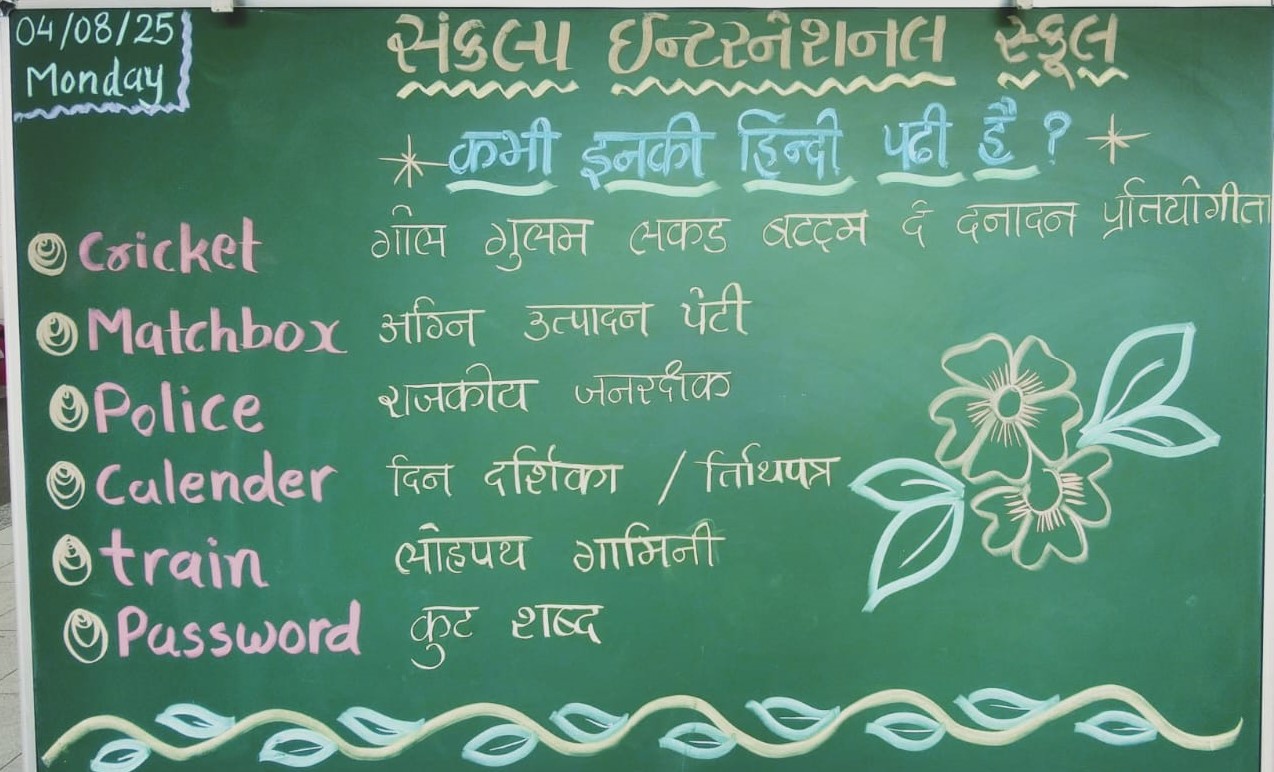 04/08/25
Monday
સંકલ્પ ઈન્ટરનેશનલ સ્કૂલ
कभी इनकी हिन्दी पढी है ?
Cricket गोल गुलम लकड बटट्म दे दनादन प्रतियोगीता
Matchbox अग्नि उत्पादन पेटी
Police राजकीय जनरक्षक
Calender दिन दर्शिका / तिथिपत्र
train लोहपथ गामिनी
Password कुट शब्द